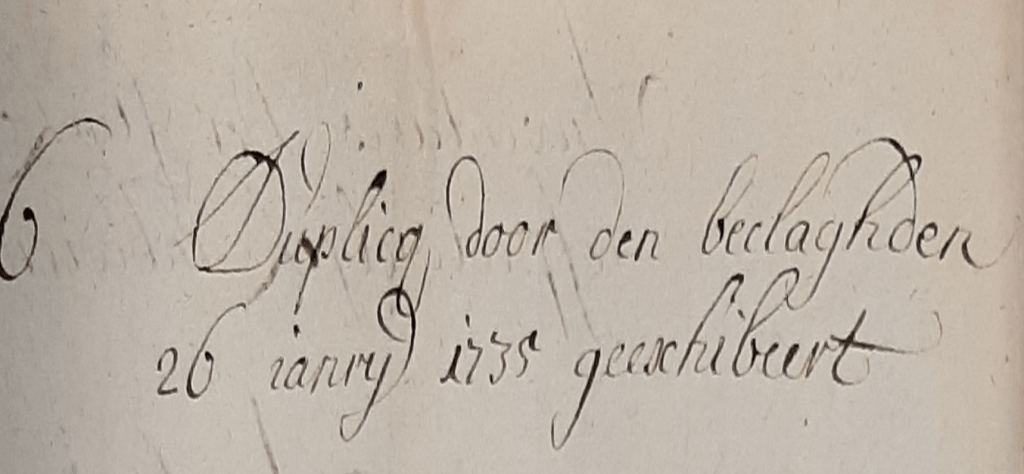 6 Duplicq door den beclaghden
26 ianry 1735 geexhibeert